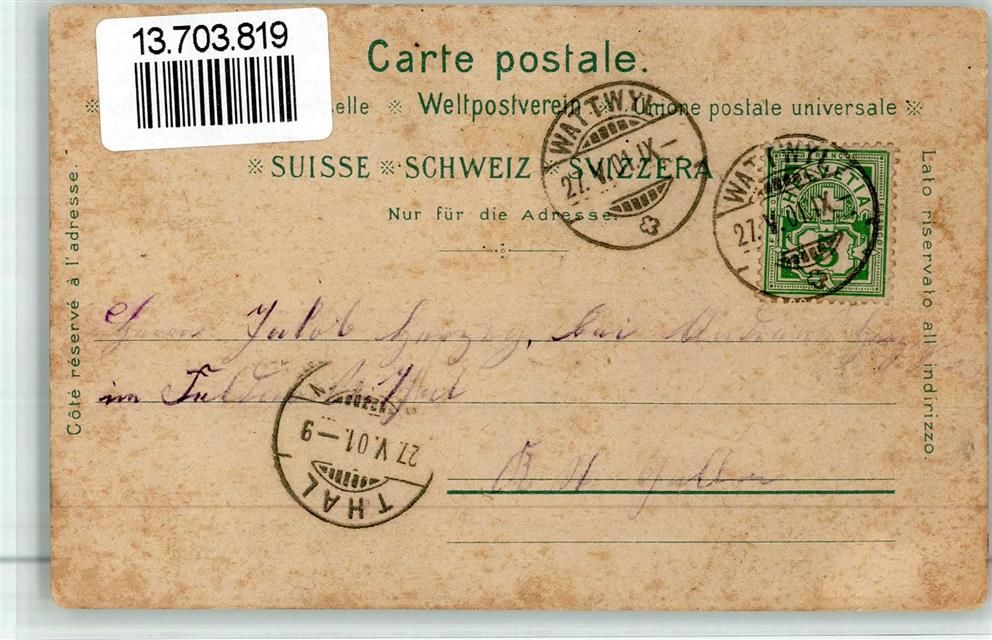 13.703.819
Carte postale.
※ elle ※ Weltpostverein ※ Unione postale universale ※
※ SUISSE ※ SCHWEIZ ※ SVIZZERA
Nur für die Adresse.
Côté réservé à l'adresse.
Lato riservato all indirizzo.
WATTWYL
27.V.01.IX-
WATTWYL
27.V.01.IX-
FRANCO
HELVETIA
5
Herrn Jakob Herzog, bei
im
THAL
27.V.01.-9